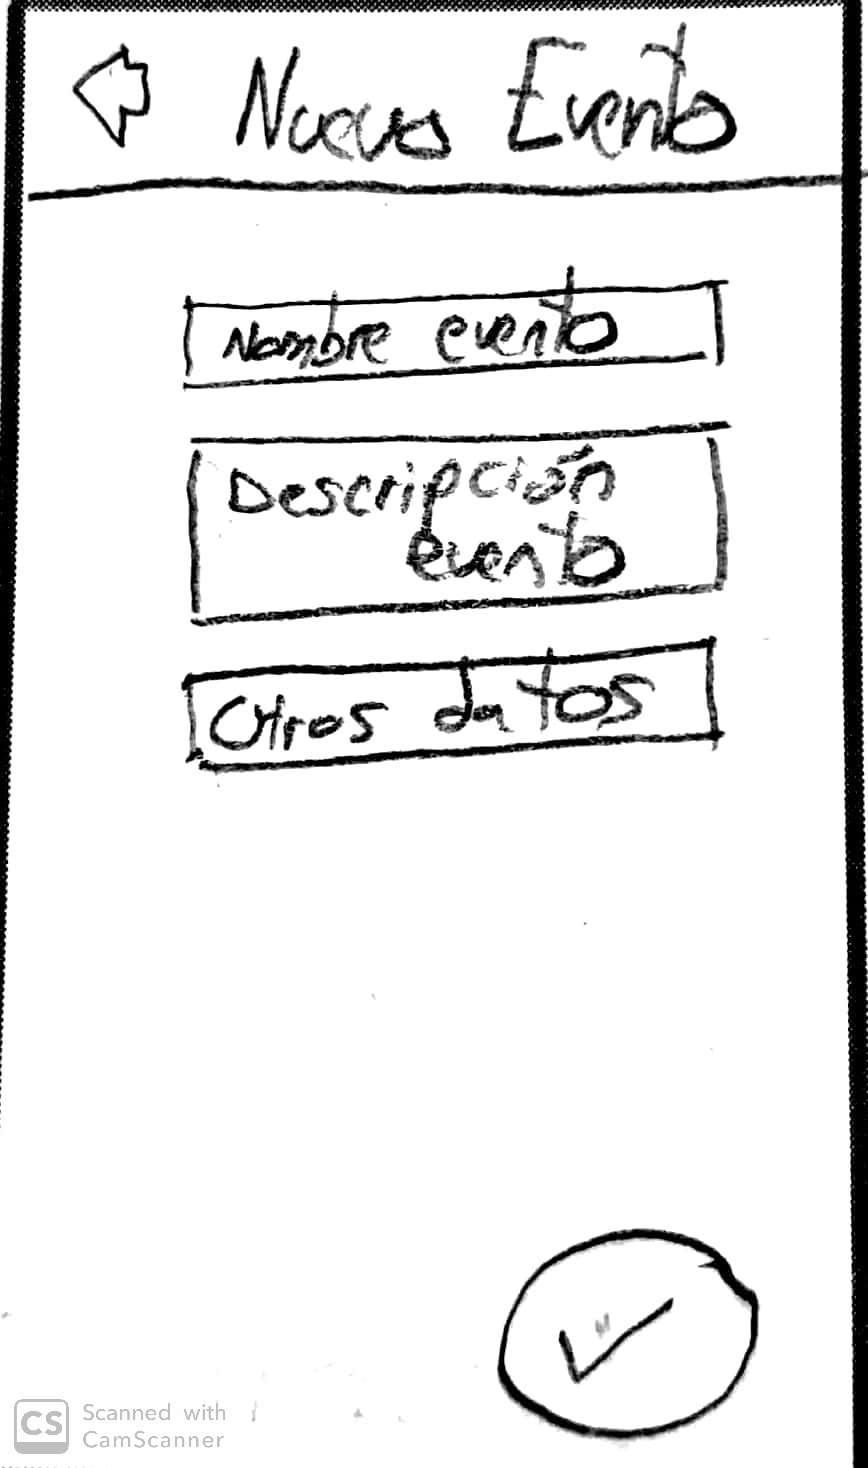 Nuevo Evento
Nombre evento
Descripción
evento
Otros datos
CS Scanned with
CamScanner